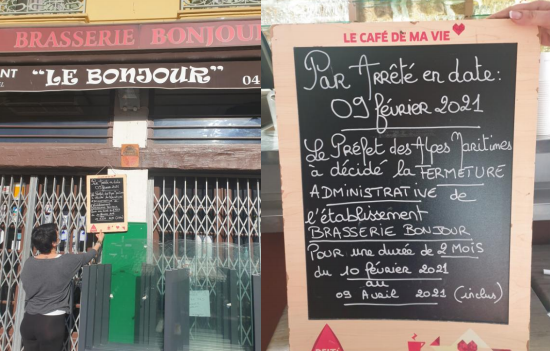 BRASSERIE BONJOUR
"LE BONJOUR" 04
LE CAFÉ DE MA VIE
Par Arrêté en date:
09 février 2021
Le Préfet des Alpes Maritimes
a décidé la FERMETURE
ADMINISTRATIVE de
l'établissement
BRASSERIE BONJOUR
Pour une durée de 2 MOIS
du 10 février 2021
au
09 Avril 2021 (inclus)